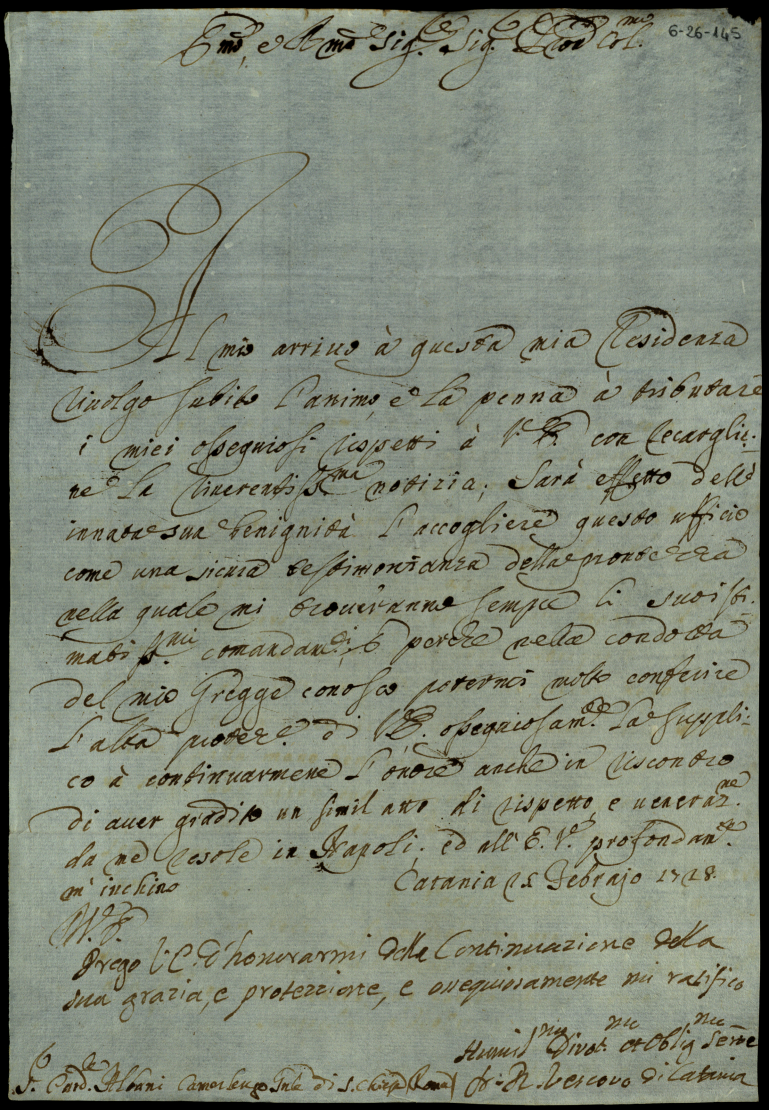 6-26-145
Em.o, e R.mo Sig.re Sig.r P.ron Col.mo
Al mio arrivo à questa mia Residenza
rivolgo subito l'animo, e la penna à tributare
i miei ossequiosi rispetti à V.E. con recarglie-
ne la riverentiss.ma notizia; Sarà effetto dell'
innata sua benignità l'accogliere questo ufficio
come una sicura testimonianza della prontezza
nella quale mi troveranno sempre li suoi sti-
matiss.mi comandam.ti, E perche nella condotta
del mio Gregge conosco potermi molto conferire
l'alta protez.e di V.E. ossequiosam.te la suppli-
co à continuarmene l'onore anche in riscontro
di aver gradito un simil atto di rispetto, e veneraz.ne
da me resole in Napoli; ed all'E.V. profondam.te
m'inchino Catania 25 Febrajo 1728.
Prego V.E. d'honorarmi della Continuazione della
sua grazia, e protezzione, e ossequiosamente mi ratifico
Humil.mo Divot.mo et Oblig.mo Ser.re
S.r Card.le Albani Camerlengo di S. Chiesa (Roma) Vescovo di Catania